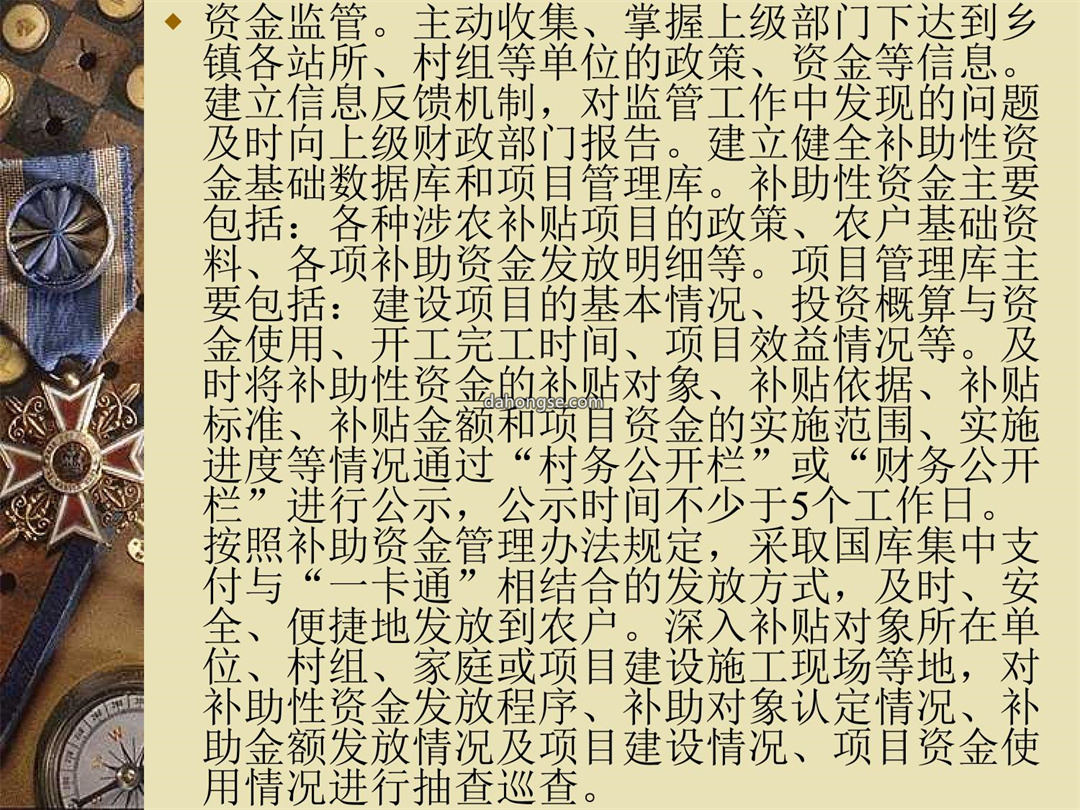 资金监管。主动收集、掌握上级部门下达到乡
镇各站所、村组等单位的政策、资金等信息。
建立信息反馈机制，对监管工作中发现的问题
及时向上级财政部门报告。建立健全补助性资
金基础数据库和项目管理库。补助性资金主要
包括：各种涉农补贴项目的政策、农户基础资
料、各项补助资金发放明细等。项目管理库主
要包括：建设项目的基本情况、投资概算与资
金使用、开工完工时间、项目效益情况等。及
时将补助性资金的补贴对象、补贴依据、补贴
dahongse.com
标准、补贴金额和项目资金的实施范围、实施
进度等情况通过“村务公开栏”或“财务公开
栏”进行公示，公示时间不少于5个工作日。
按照补助资金管理办法规定，采取国库集中支
付与“一卡通”相结合的发放方式，及时、安
全、便捷地发放到农户。深入补贴对象所在单
位、村组、家庭或项目建设施工现场等地，对
补助性资金发放程序、补助对象认定情况、补
助金额发放情况及项目建设情况、项目资金使
用情况进行抽查巡查。